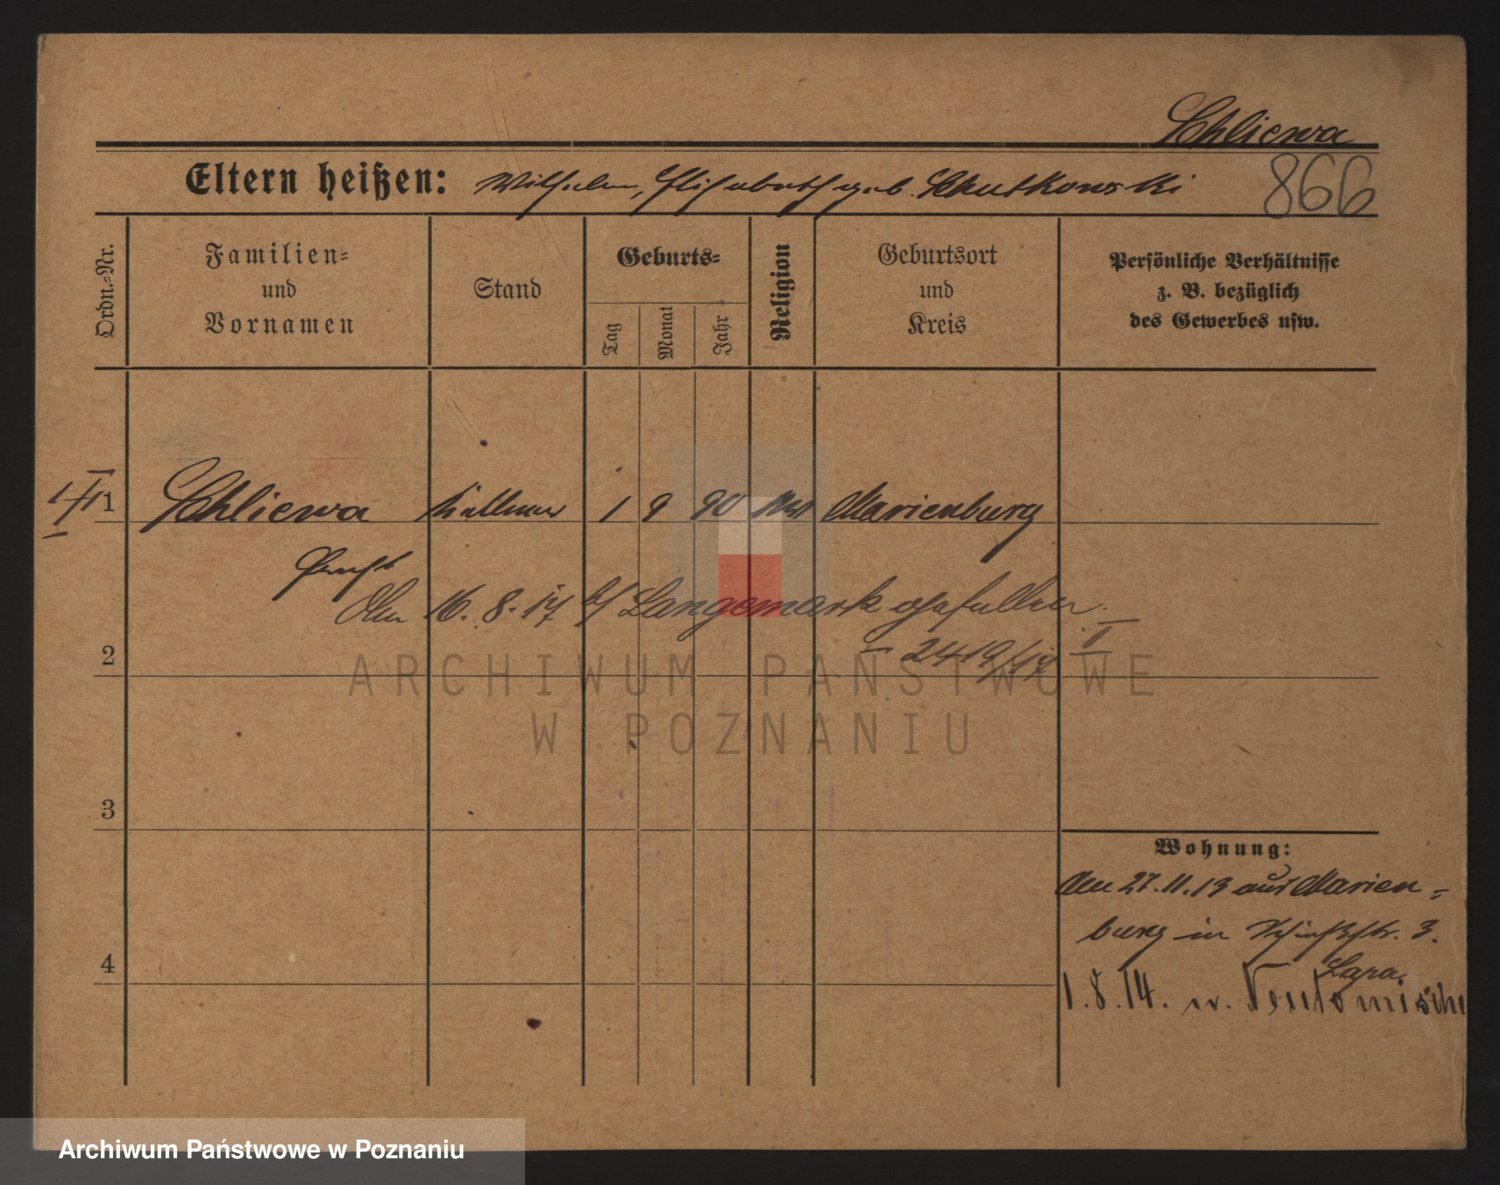 Schliewa
866
Eltern heißen: Wilhelm, Elisabeth geb. Schutkowski
Ordn.-Nr.
Familien-
und
Vornamen
Stand
Geburts-
Tag
Monat
Jahr
Religion
Geburtsort
und
Kreis
Persönliche Verhältnisse
z. B. bezüglich
des Gewerbes usw.
1 Schliewa Kellner 1 9 90 Marienburg
Den 16. 8. 17 b/ Langemark gefallen.
2419/17 II
2
3
4
Wohnung:
Den 27.11.13 aus Marien-
burg in 3.
1.8.14. n. Neutomischel
ARCHIWUM PAŃSTWOWE
W POZNANIU
Archiwum Państwowe w Poznaniu